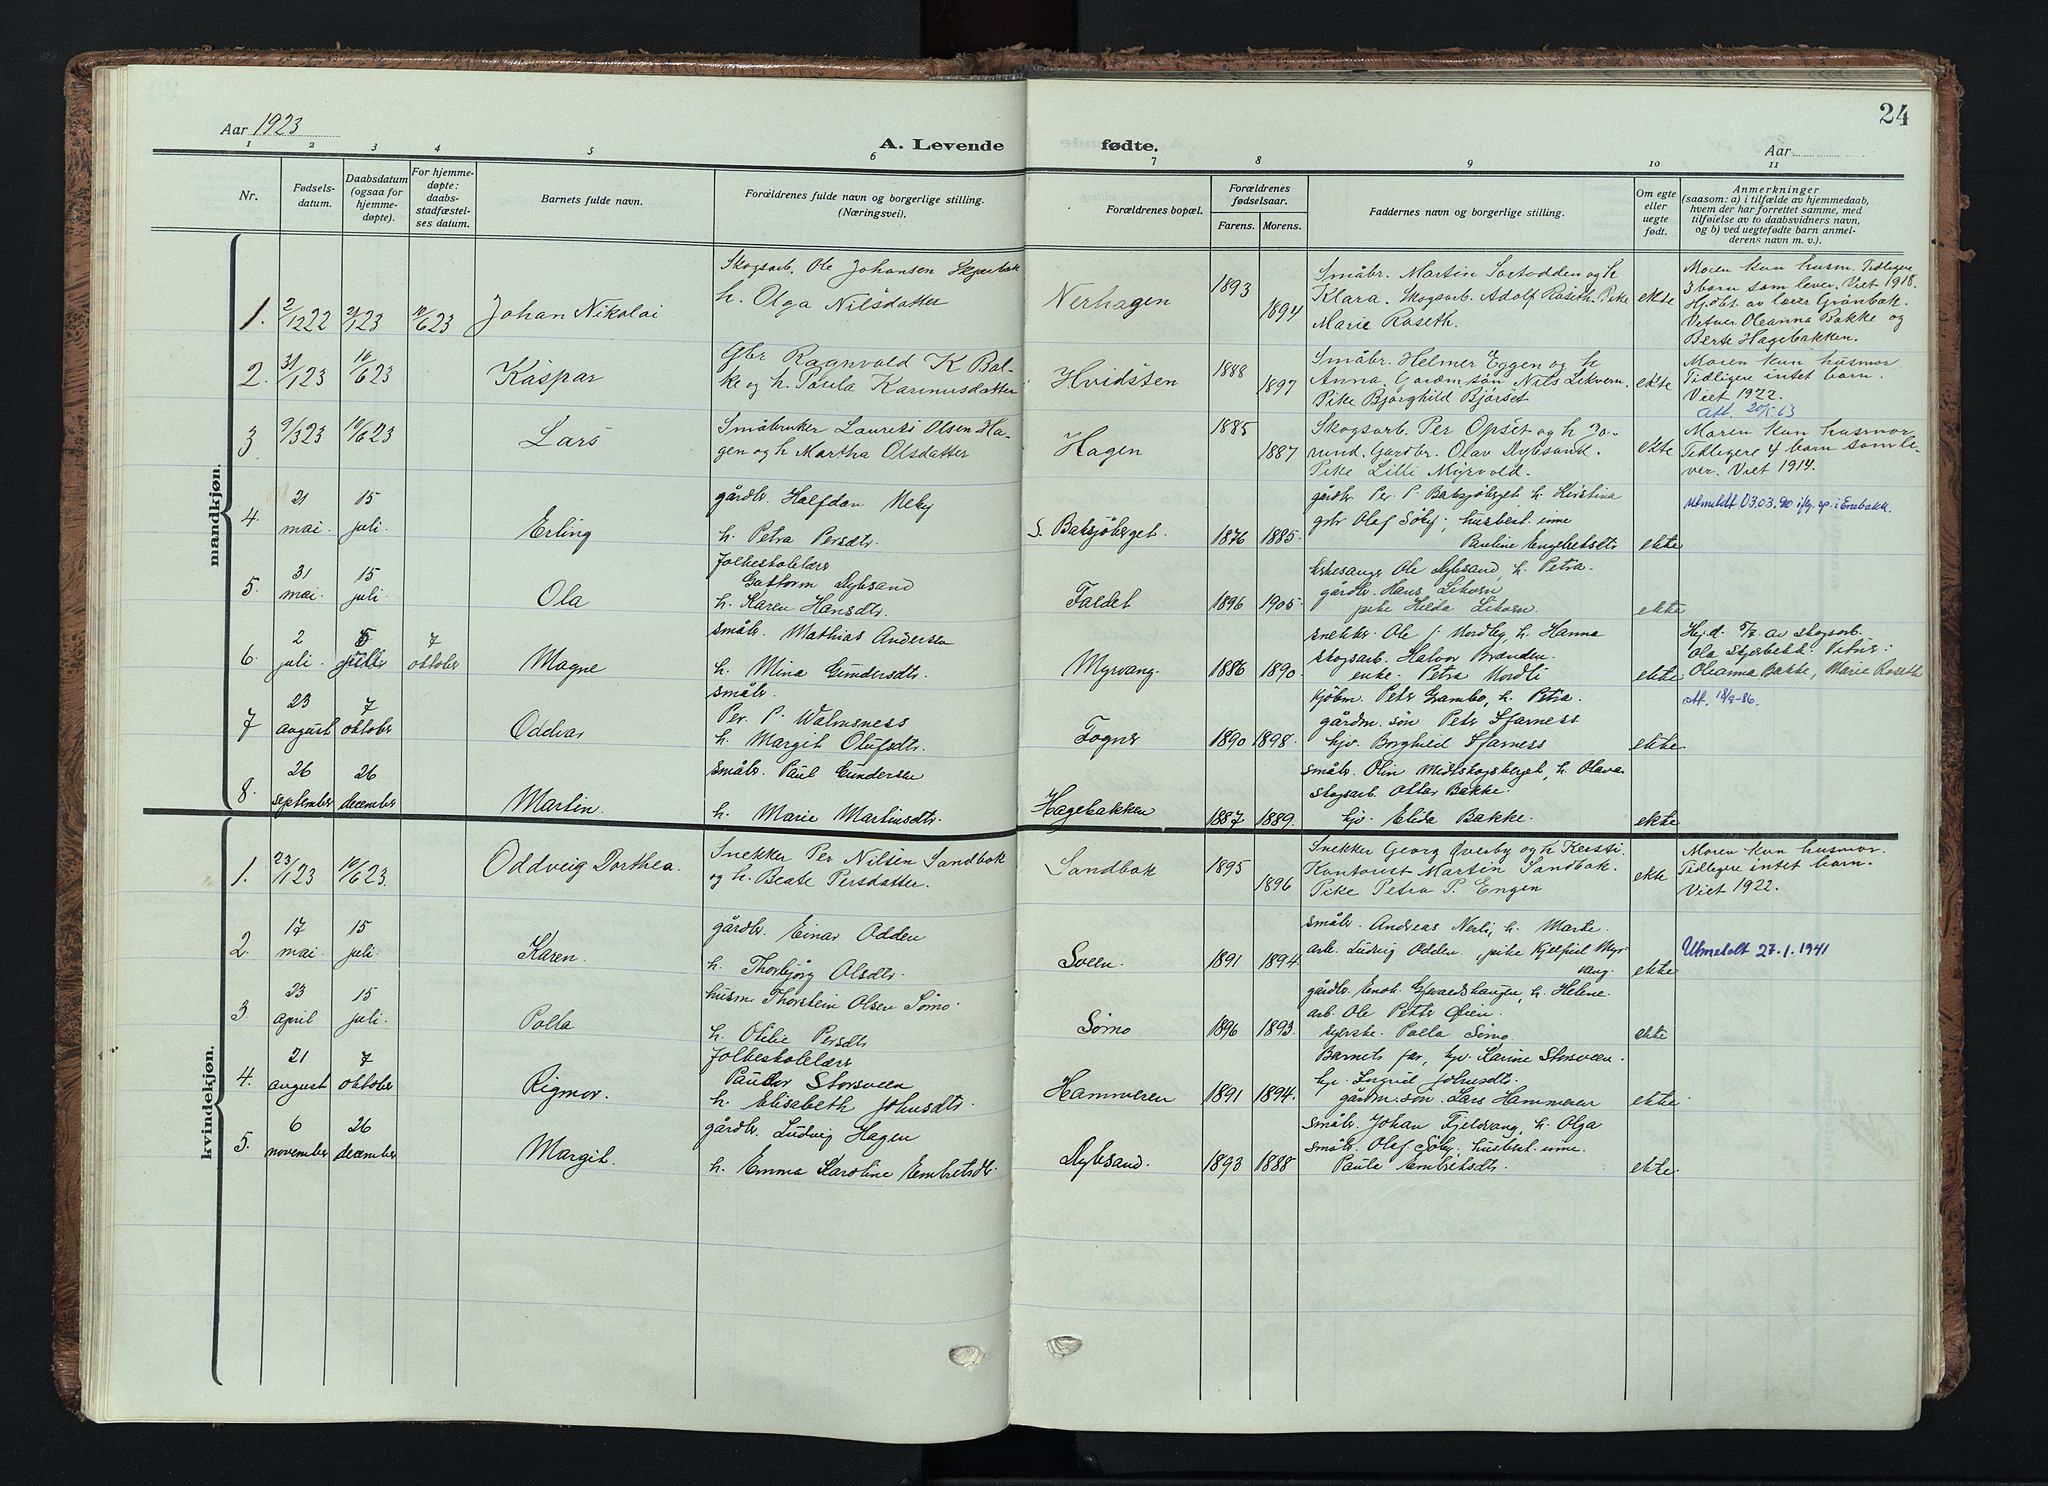 Aar 1923
A. Levende
fødte.
24
Aar
1 2 3 4 5 6 7 8 9 10 11
Nr.
Fødsels-
datum.
Daabsdatum
(ogsaa for
hjemme-
døpte).
For hjemme-
døpte:
daabs-
stadfæstel-
ses datum.
Barnets fulde navn.
Forældrenes fulde navn og borgerlige stilling.
(Næringsvei).
Forældrenes bopæl.
Forældrenes
fødselsaar.
Farens. Morens.
Faddernes navn og borgerlige stilling.
Om egte
eller
uegte
født.
Anmerkninger
(saasom: a) i tilfælde av hjemmedaab,
hvem der har forrettet samme, med
tilføielse av to daabsvidners navn,
og b) ved uegtefødte barn anmel-
derens navn m. v.).
mandkjøn.
1. 2/12 22 21/1 23 10/6 23 Johan Nikolai
Skogsarb. Ole Johansen Skjærbak
h. Olga Nilsdatter
Nerhagen 1893 1894
Småbr. Martin Sortodden og h
Klara. Skogsarb. Adolf Roseth. Pike
Marie Roseth.
ekte
Moren kun husm. Tidligere
3 barn som lever. Viet 1918.
Hjdbt. av lærer Grønbak.
Vitner Oleanna Bakke og
Berte Hagebakken.
2. 31/1 23 10/6 23 Kaspar
Gbr Ragnvald K Bak-
ke og h. Karinusdatter
Hvidsten 1888 1897
Småbr. Helmer Eggen og h
Anna. Gardmsøn Nils Likvern.
Pike Bjørghild Bjørset
ekte
Moren kun husmor
Tidligere intet barn.
Viet 1922.
att. 20/5 63
3 9/3 23 10/6 23 Lars
Småbruker Laurits Olsen Ha-
gen og h Martha Olsdatter
Hagen 1885 1887
Skogsarb. Per Opset og h Jo-
rund. Gardbr. Olav Dybsand.
Pike Lilli Myrvold.
ekte
Moren kun husmor
Tidligere 4 barn som le-
ver. Viet 1914.
4. 21 mai. 15 juli. Erling
gårdbr. Halfdan Neby
h. Petra Persdtr.
S. Baksjøberget. 1876 1885.
gårdbr. Per P. Baksjøberget, h. Kirstina
gbr Olaf Søby; husbest. inne
Pauline Engebretsdtr
ekte
Utmeldt 03.03.90 iflg. sp. i Enebakk.
5. 31 mai. 15 juli. Ola
folkeskolelærer
Guttorm Dybsand
h. Karen Hansdtr.
Faldet 1896 1905.
kirkesanger Ole Dybsand, h. Petra.
gårdbr. Hans Likvern
pike Hilda Likvern.
ekte
6. 2 juli. 5 juli 7 oktober Magne
småbr. Mathias Andersen
h. Mina Gundersdtr.
Myrvang. 1886 1890.
snekker. Ole J. Nordby, h. Hanna
skogsarb. Halvor Brænden.
enke. Petra Nordli
ekte
Hj.d. 5/7. av skogsarb.
Ola Skjærbekk. Vitner:
Oleanna Bakke, Marie Roseth
7 23 august 7 oktober Oddvar
småbr.
Per. P. Walmsness
h. Margit Olufsdtr.
Fogner 1890 1898.
kjøbm. Peter Grambo, h. Petra.
gårdm. søn Peter Starness
hjv. Borghild Starness
ekte.
att. 18/8-86.
8. 26 september 26 december Martin.
småbr. Paul Gundersen
h. Marie Martinsdtr.
Hagebakken 1887 1889.
småbr. Olin Midtskogsberget, h. Olava.
skogsarb. Ottar Bakke.
hjv. Elida Bakke.
ekte
kvindekjøn.
1. 23/1 23 10/6 23. Oddveig Dorthea.
Snekker Per Nilsen Sandbak
og h. Beate Persdatter.
Sandbak 1895 1896
Snekker Georg Øverby og h Kersti
Kontorist Martin Sandbak.
Pike Petra P. Engen
ekte
Moren kun husmor.
Tidligere intet barn.
Viet 1922.
2. 17 mai. 15 juli. Karen.
gårdbr. Einar Odden
h. Thorbjørg Olsdtr.
Sveen. 1891 1894.
småbr. Andreas Nerli, h. Marte.
arb. Ludvig Odden, pike Kjellfrid Myr-
vang.
ekte
Utmeldt 27.1.1941
3. 23 april 15 juli. Palla
husm. Thorstein Olsen Sørmo.
h. Otilie Persdtr
Sørmo 1896 1893.
gårdbr. Enok Gjevaldshaugen, h. Helene.
arb. Ole Petter Øien.
syerske. Palla Sørmo
ekte
4. 21 august 7 oktober Rigmor.
folkeskolelærer
Storsveen
h. Elisabeth Johnsdtr.
Hammeren 1891 1894.
Barnets far, hjv. Karine Storsveen.
hjv. Ingrid Johnsdtr.
gårdm. søn. Lars Hammeren
ekte.
5. 6 november 26 december Margit.
gårdbr. Ludvig Hagen
h. Emma Karoline Embretsdtr
Dybsand. 1893 1888
småbr. Johan Fjeldvang, h. Olga
småbr. Olaf Søby; husbest. inne.
Paula Embretsdtr.
ekte.